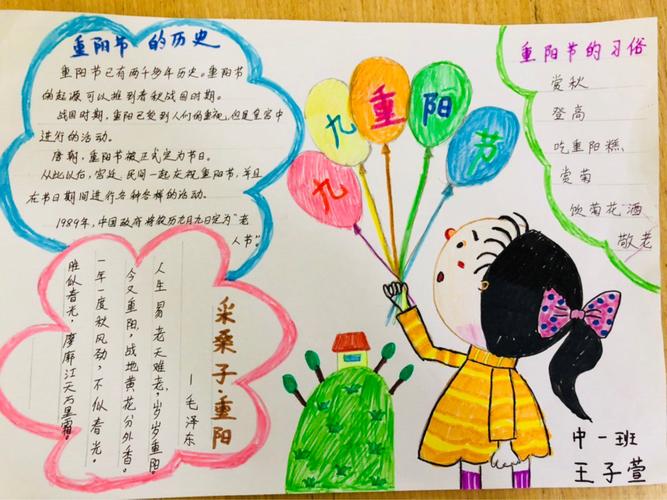 重阳节 的历史
重阳节已有两千多年历史。重阳节
的起源可以推到春秋战国时期。
战国时期,重阳已受到人们的重视,但是皇宫中
进行的活动。
唐朝,重阳节被正式定为节日。
从此以后,宫廷、民间一起庆祝重阳节,并且
在节日期间进行各种各样的活动。
1989年,中国政府将农历九月九日定为“老
人节”。
九九重阳节
重阳节的习俗
赏秋
登高
吃重阳糕
赏菊
饮菊花酒
敬老
采桑子·重阳
—毛泽东
人生易老天难老,岁岁重阳,
今又重阳,战地黄花分外香。
一年一度秋风劲,不似春光。
胜似春光,寥廓江天万里霜。
中一班
王子萱